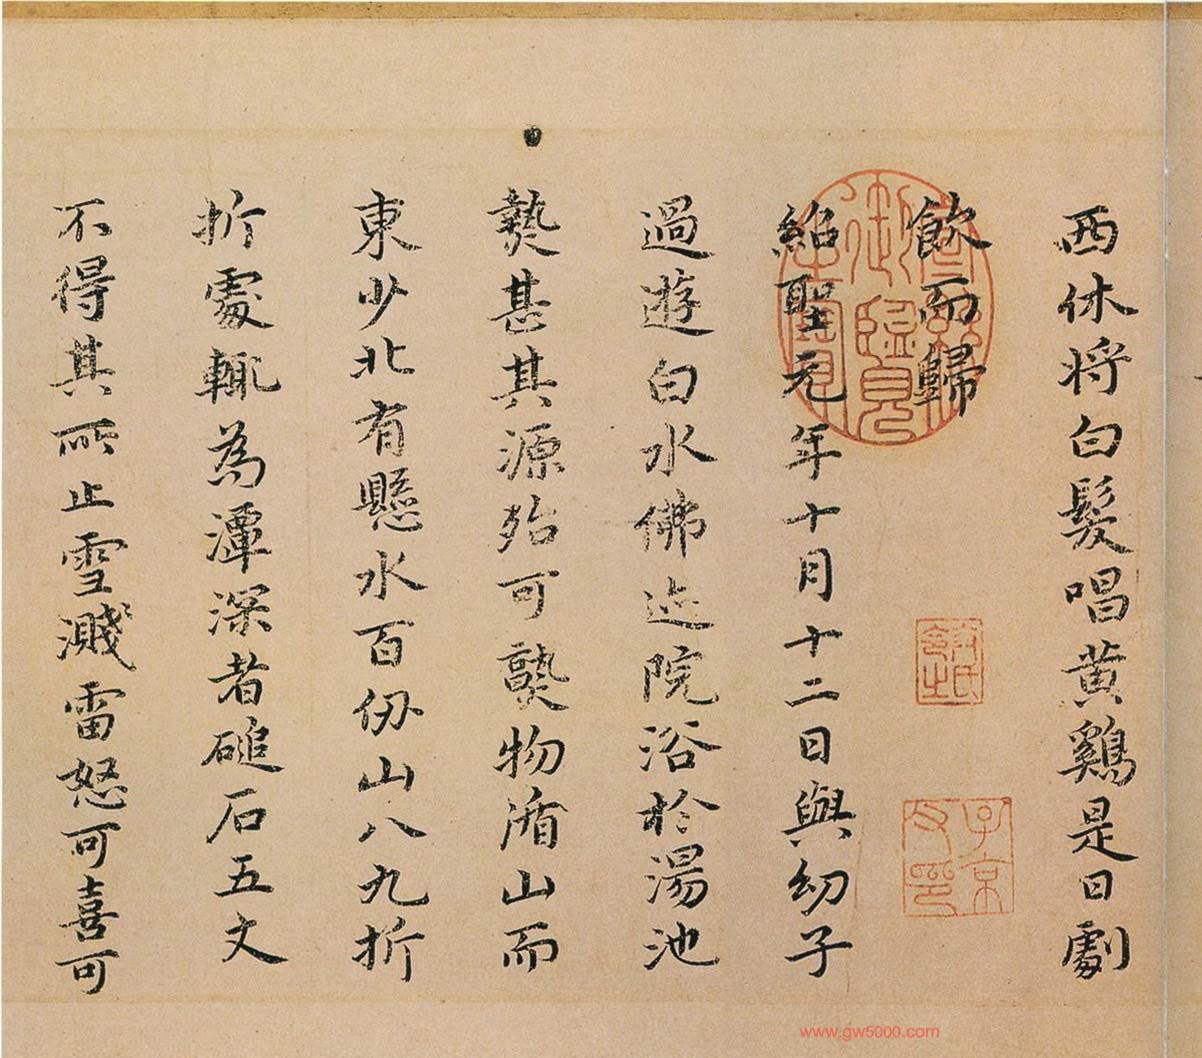 西休将白髮唱黄鷄是日劇
飲而歸
紹聖元年十月十二日與幼子
過遊白水佛迹院浴於湯池
𤍠甚其源殆可𤎅物循山而
東少北有懸水百仞山八九折
折處輒為潭深者磓石五丈
不得其所止雪濺雷怒可喜可
御覽
子京
www.gw5000.com